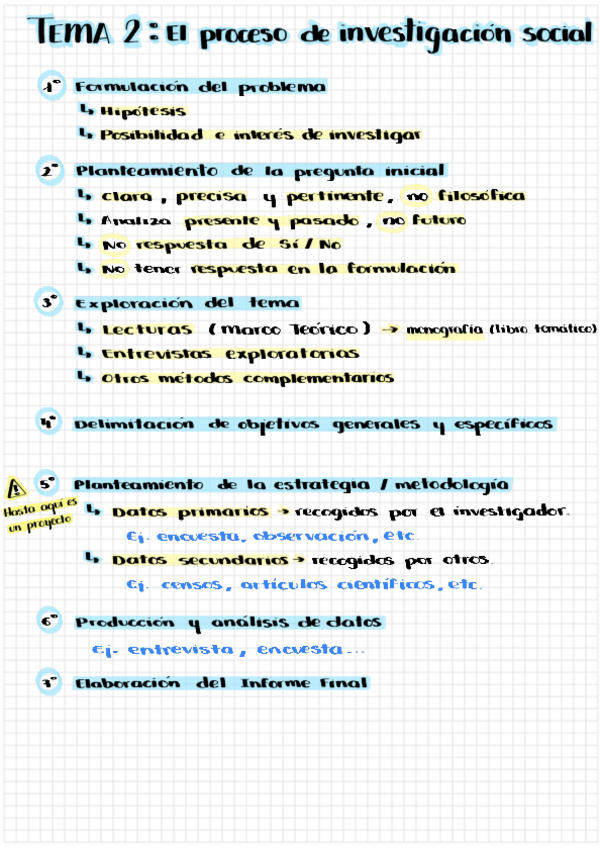 TEMA 2: El proceso de investigación social
1º Formulación del problema
↳ Hipótesis
↳ Posibilidad e interés de investigar
2º Planteamiento de la pregunta inicial
↳ Clara, precisa y pertinente, no filosófica
↳ Analiza presente y pasado, no futuro
↳ No respuesta de Sí / No
↳ No tener respuesta en la formulación
3º Exploración del tema
↳ Lecturas (Marco Teórico) → monografía (libro temático)
↳ Entrevistas exploratorias
↳ Otros métodos complementarios
4º Delimitación de objetivos generales y específicos
5º Planteamiento de la estrategia / metodología
Hasta aquí es
un proyecto
↳ Datos primarios → recogidos por el investigador.
Ej. encuesta, observación, etc.
↳ Datos secundarios → recogidos por otros.
Ej. censos, artículos científicos, etc.
6º Producción y análisis de datos
Ej. entrevista, encuesta...
7º Elaboración del Informe Final